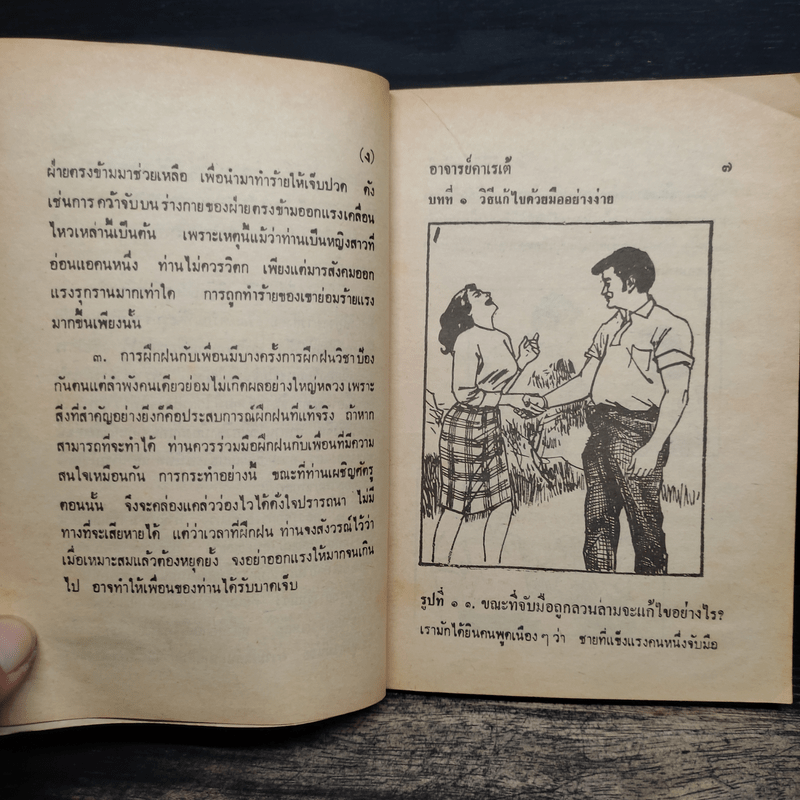 (ง)
ฝ่ายตรงข้ามมาช่วยเหลือ เพื่อนำมาทำร้ายให้เจ็บปวด ดัง
เช่นการคว้าจับบนร่างกายของฝ่ายตรงข้ามออกแรงเคลื่อน
ไหวเหล่านี้เป็นต้น เพราะเหตุนี้แม้ว่าท่านเป็นหญิงสาวที่
อ่อนแอคนหนึ่ง ท่านไม่ควรวิตก เพียงแต่มารสังคมออก
แรงรุกรานมากเท่าใด การถูกทำร้ายของเขาย่อมร้ายแรง
มากขึ้นเพียงนั้น
๓. การฝึกฝนกับเพื่อนมีบางครั้งการฝึกฝนวิชาป้อง
กันตนแต่ลำพังคนเดียวย่อมไม่เกิดผลอย่างใหญ่หลวง เพราะ
สิ่งที่สำคัญอย่างยิ่งก็คือประสบการณ์ฝึกฝนที่แท้จริง ถ้าหาก
สามารถที่จะทำได้ ท่านควรร่วมมือฝึกฝนกับเพื่อนที่มีความ
สนใจเหมือนกัน การกระทำอย่างนี้ ขณะที่ท่านเผชิญศัตรู
ตอนนั้น จึงจะคล่องแคล่วว่องไวได้ดั่งใจปรารถนา ไม่มี
ทางที่จะเสียหายได้ แต่ว่าเวลาที่ฝึกฝน ท่านจงสังวรณ์ไว้ว่า
เมื่อเหมาะสมแล้วต้องหยุดยั้ง จงอย่าออกแรงให้มากจนเกิน
ไป อาจทำให้เพื่อนของท่านได้รับบาดเจ็บ
อาจารย์คาเรเต้ ๗
บทที่ ๑ วิธีแก้ไขด้วยมืออย่างง่าย
1
รูปที่ ๑ ๑. ขณะที่จับมือถูกลวนลามจะแก้ไขอย่างไร?
เรามักได้ยินคนพูดเนือง ๆ ว่า ชายที่แข็งแรงคนหนึ่งจับมือ